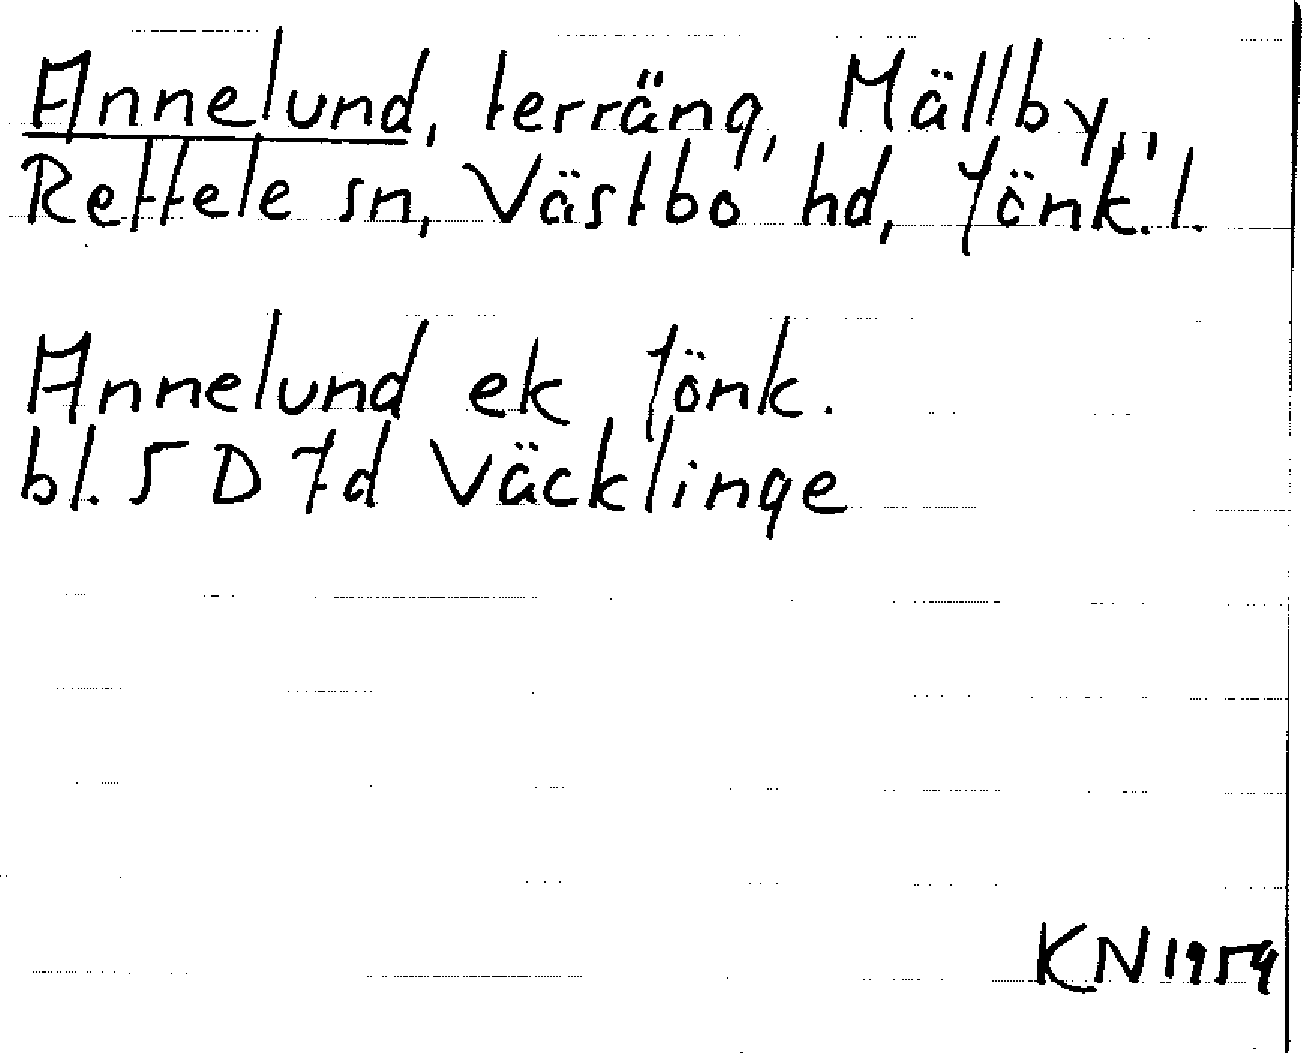 Annelund, terräng, Mällby,
Reftele sn, Västbo hd, Jönk.l.
Annelund ek Jönk.
bl. 5 D 7d Väcklinge
KN 1959